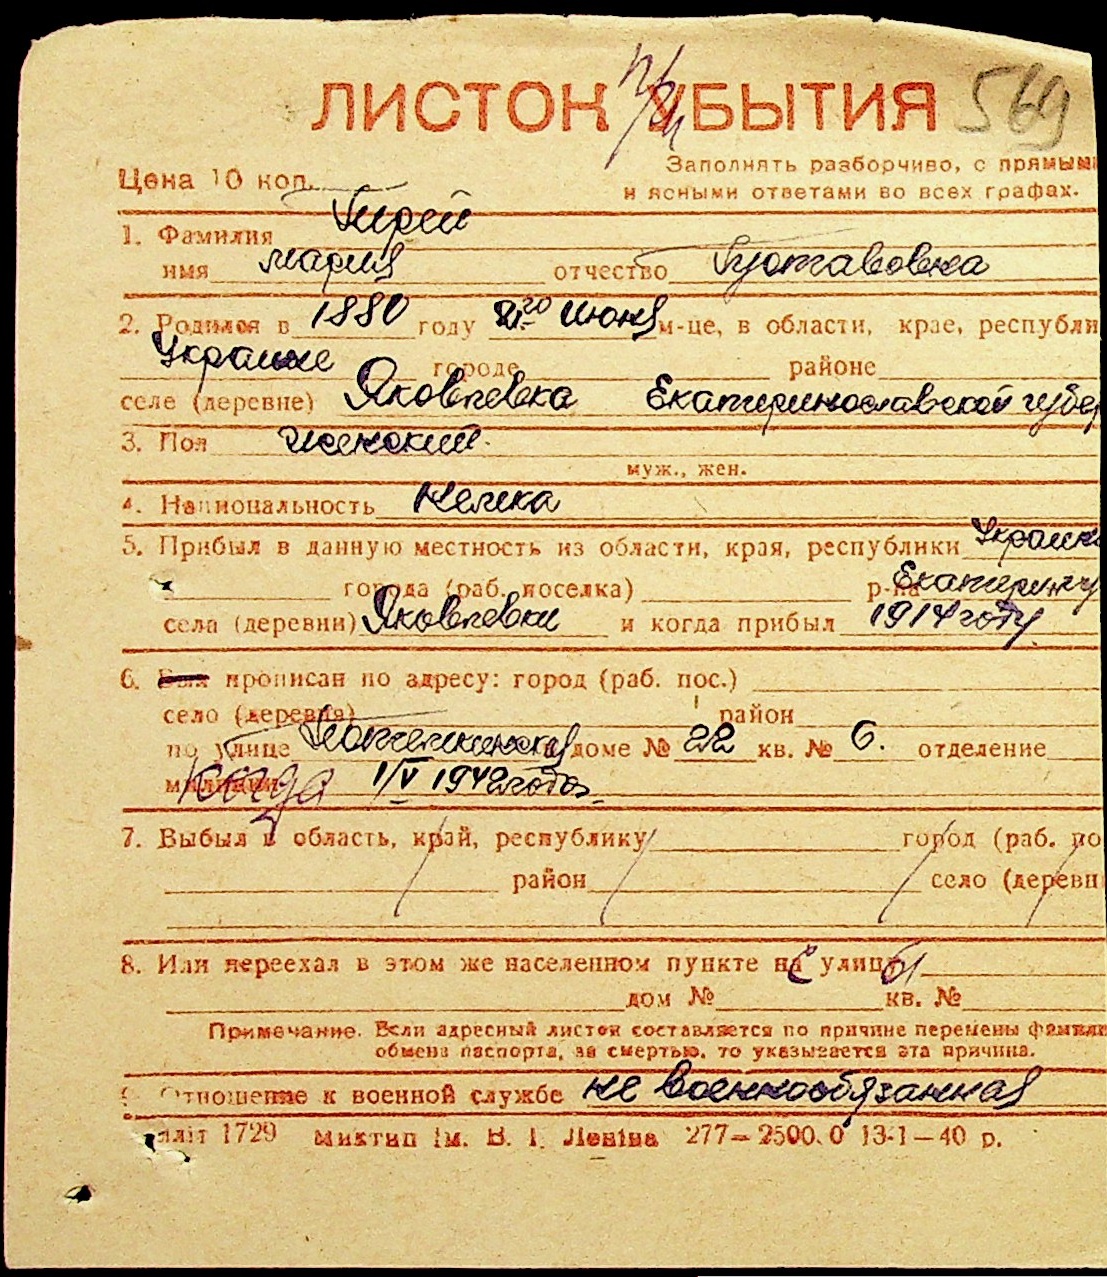 ЛИСТОК УБЫТИЯ 569
Заполнять разборчиво, с прямыми
Цена 10 коп. и ясными ответами во всех графах.
1. Фамилия Гирей
имя Мария отчество Густавовна
2. Родился в 1880 году 21го июня м-це, в области, крае, республи
Украине городе районе
селе (деревне) Яковлевка Екатеринославской губер
3. Пол женский
муж., жен.
4. Национальность Немка
5. Прибыл в данную местность из области, края, республики Украин
города (раб. поселка) р-на
села (деревни) Яковлевки и когда прибыл 1914 году
6. прописан по адресу: город (раб. пос.)
село (деревня) район
по улице Потемкинская доме № 22 кв. № 6. отделение
милиции когда 1/V 1942 года
7. Выбыл в область, край, республику город (раб. по
район село (деревн
8. Или переехал в этом же населенном пункте на улицу
дом № кв. №
Примечание. Если адресный листок составляется по причине перемены фамили
обмена паспорта, за смертью, то указывается эта причина.
Отношение к военной службе не военнообязанная
літ 1729 Миктип ім. В. І. Леніна 277—2500.0 13-1—40 р.